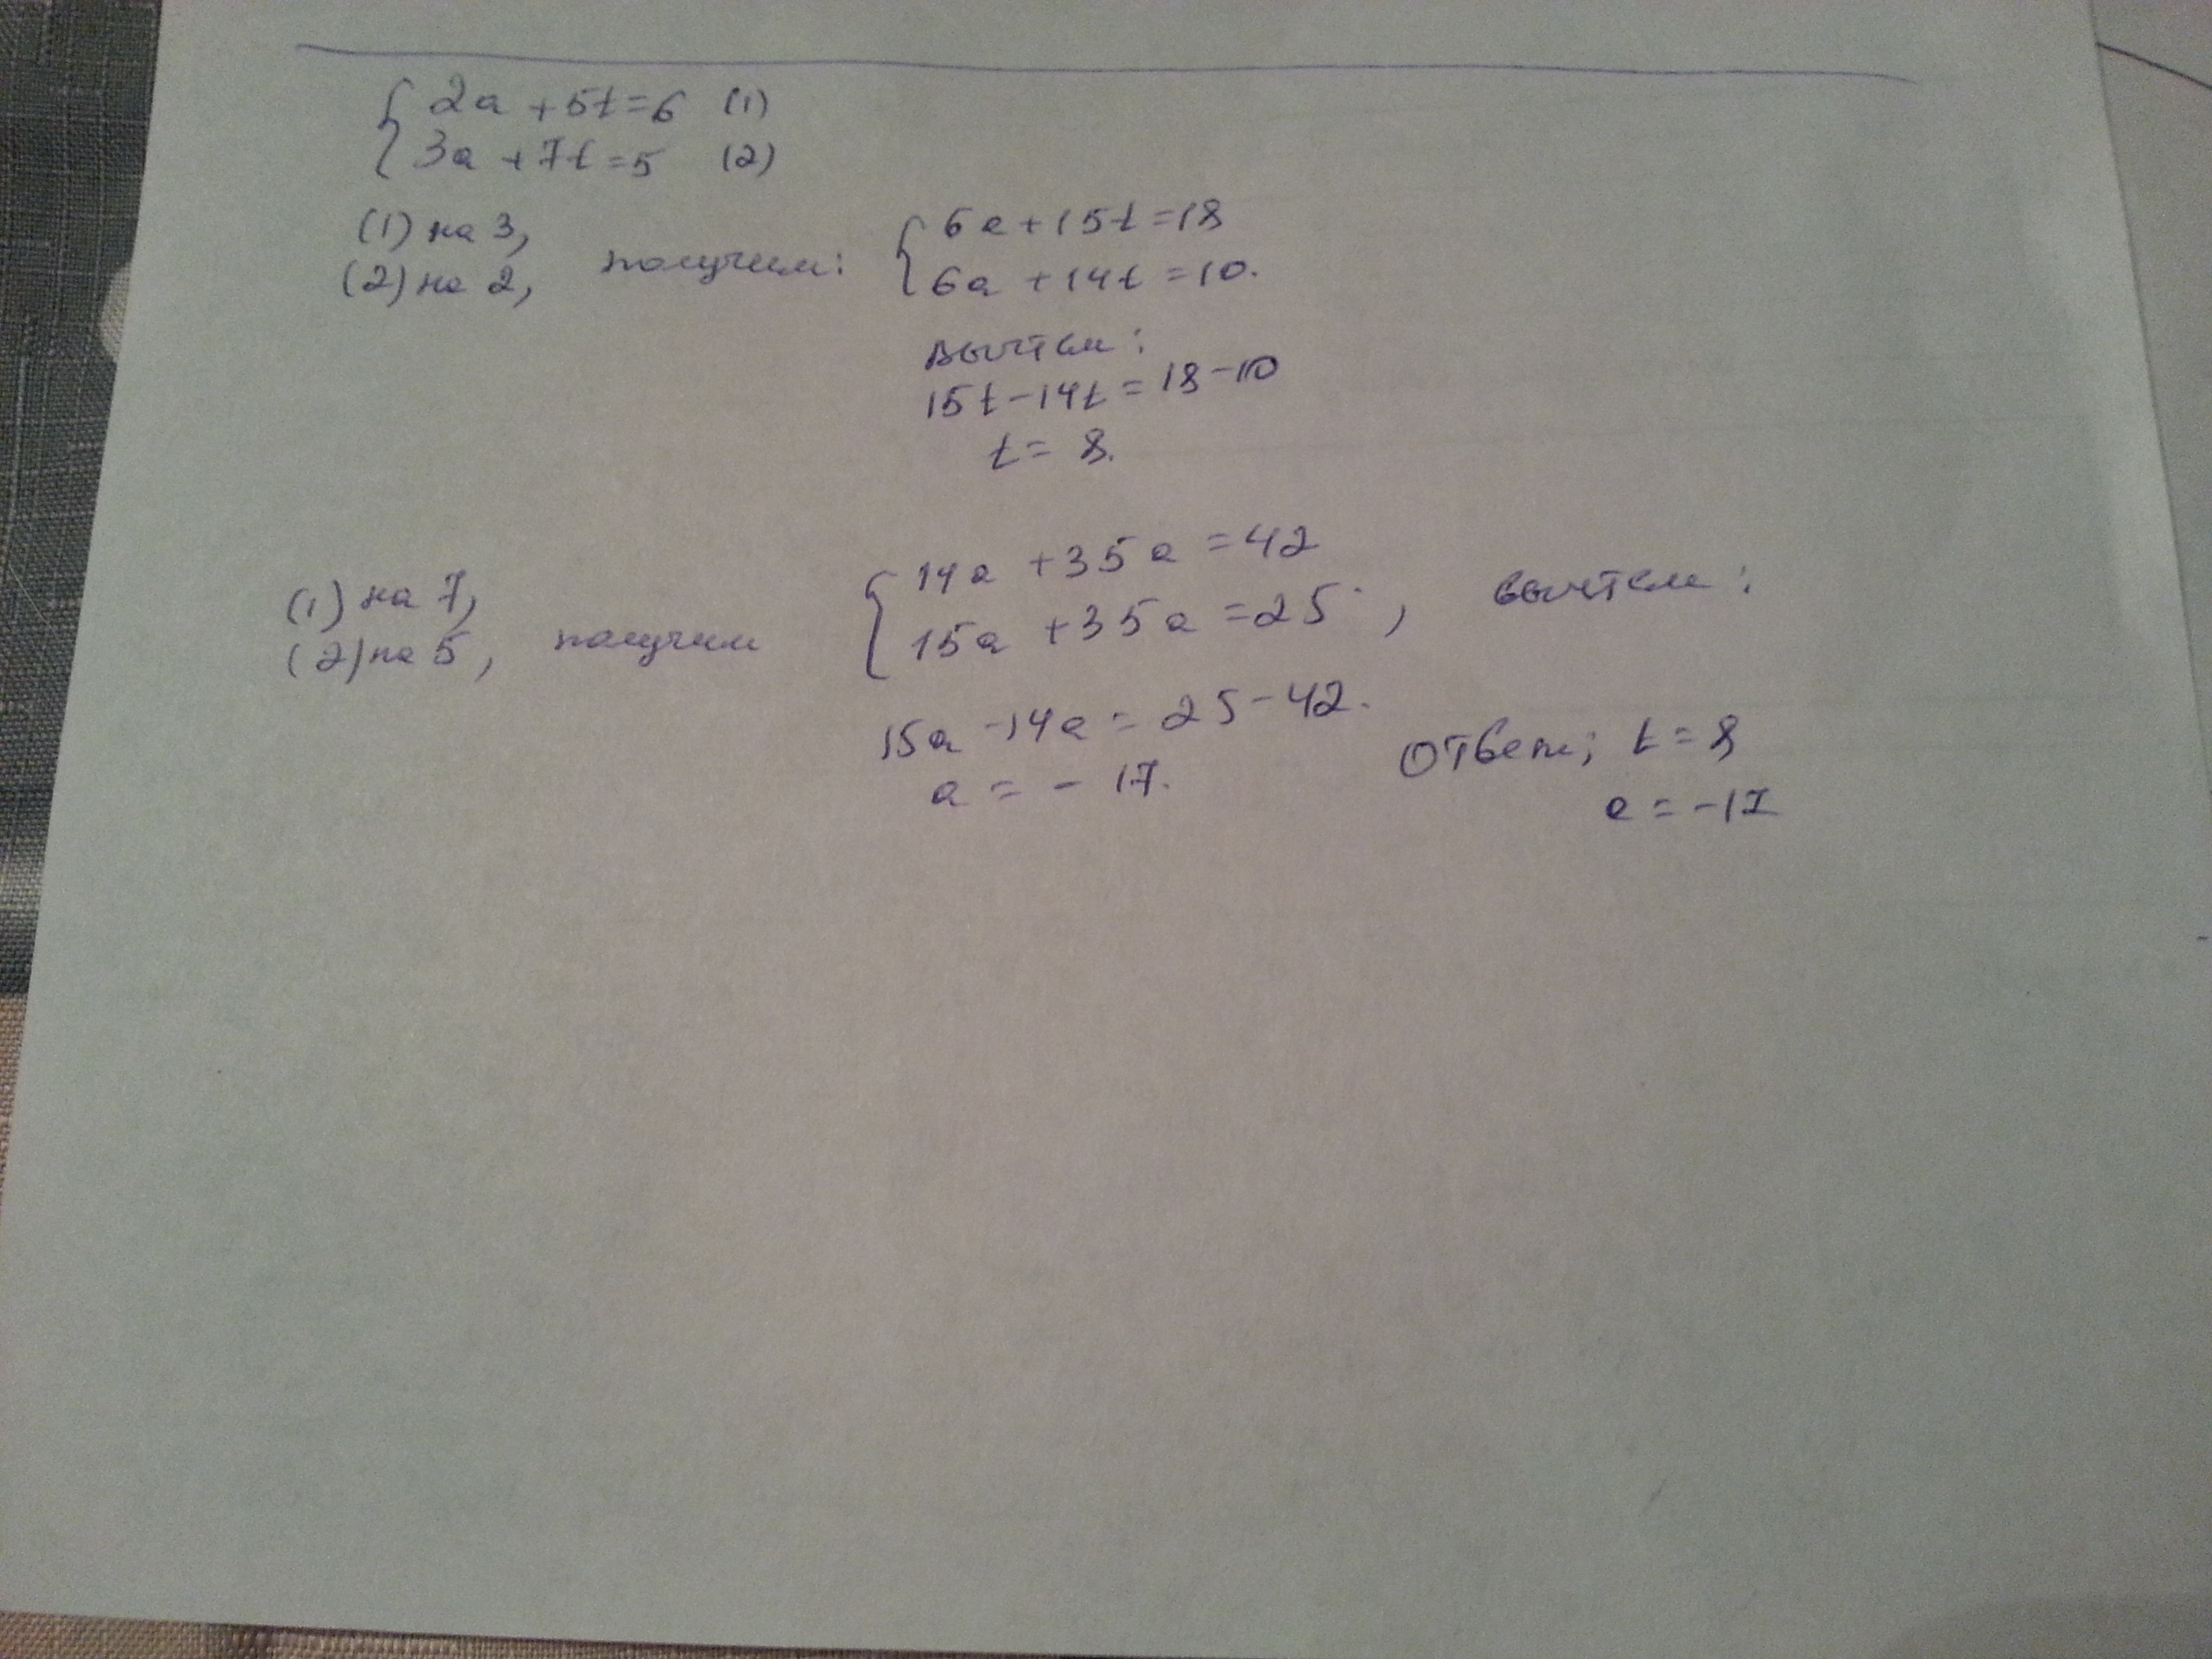 { 2a + 5t = 6 (1)
3a + 7t = 5 (2)
(1) на 3,
(2) на 2, получим: { 6a + 15t = 18
6a + 14t = 10.
вычтем:
15t - 14t = 18 - 10
t = 8.
(1) на 7,
(2) на 5, получим { 14a + 35a = 42
15a + 35a = 25, вычтем:
15a - 14a = 25 - 42.
a = - 17.
Ответ; t = 8
a = -17